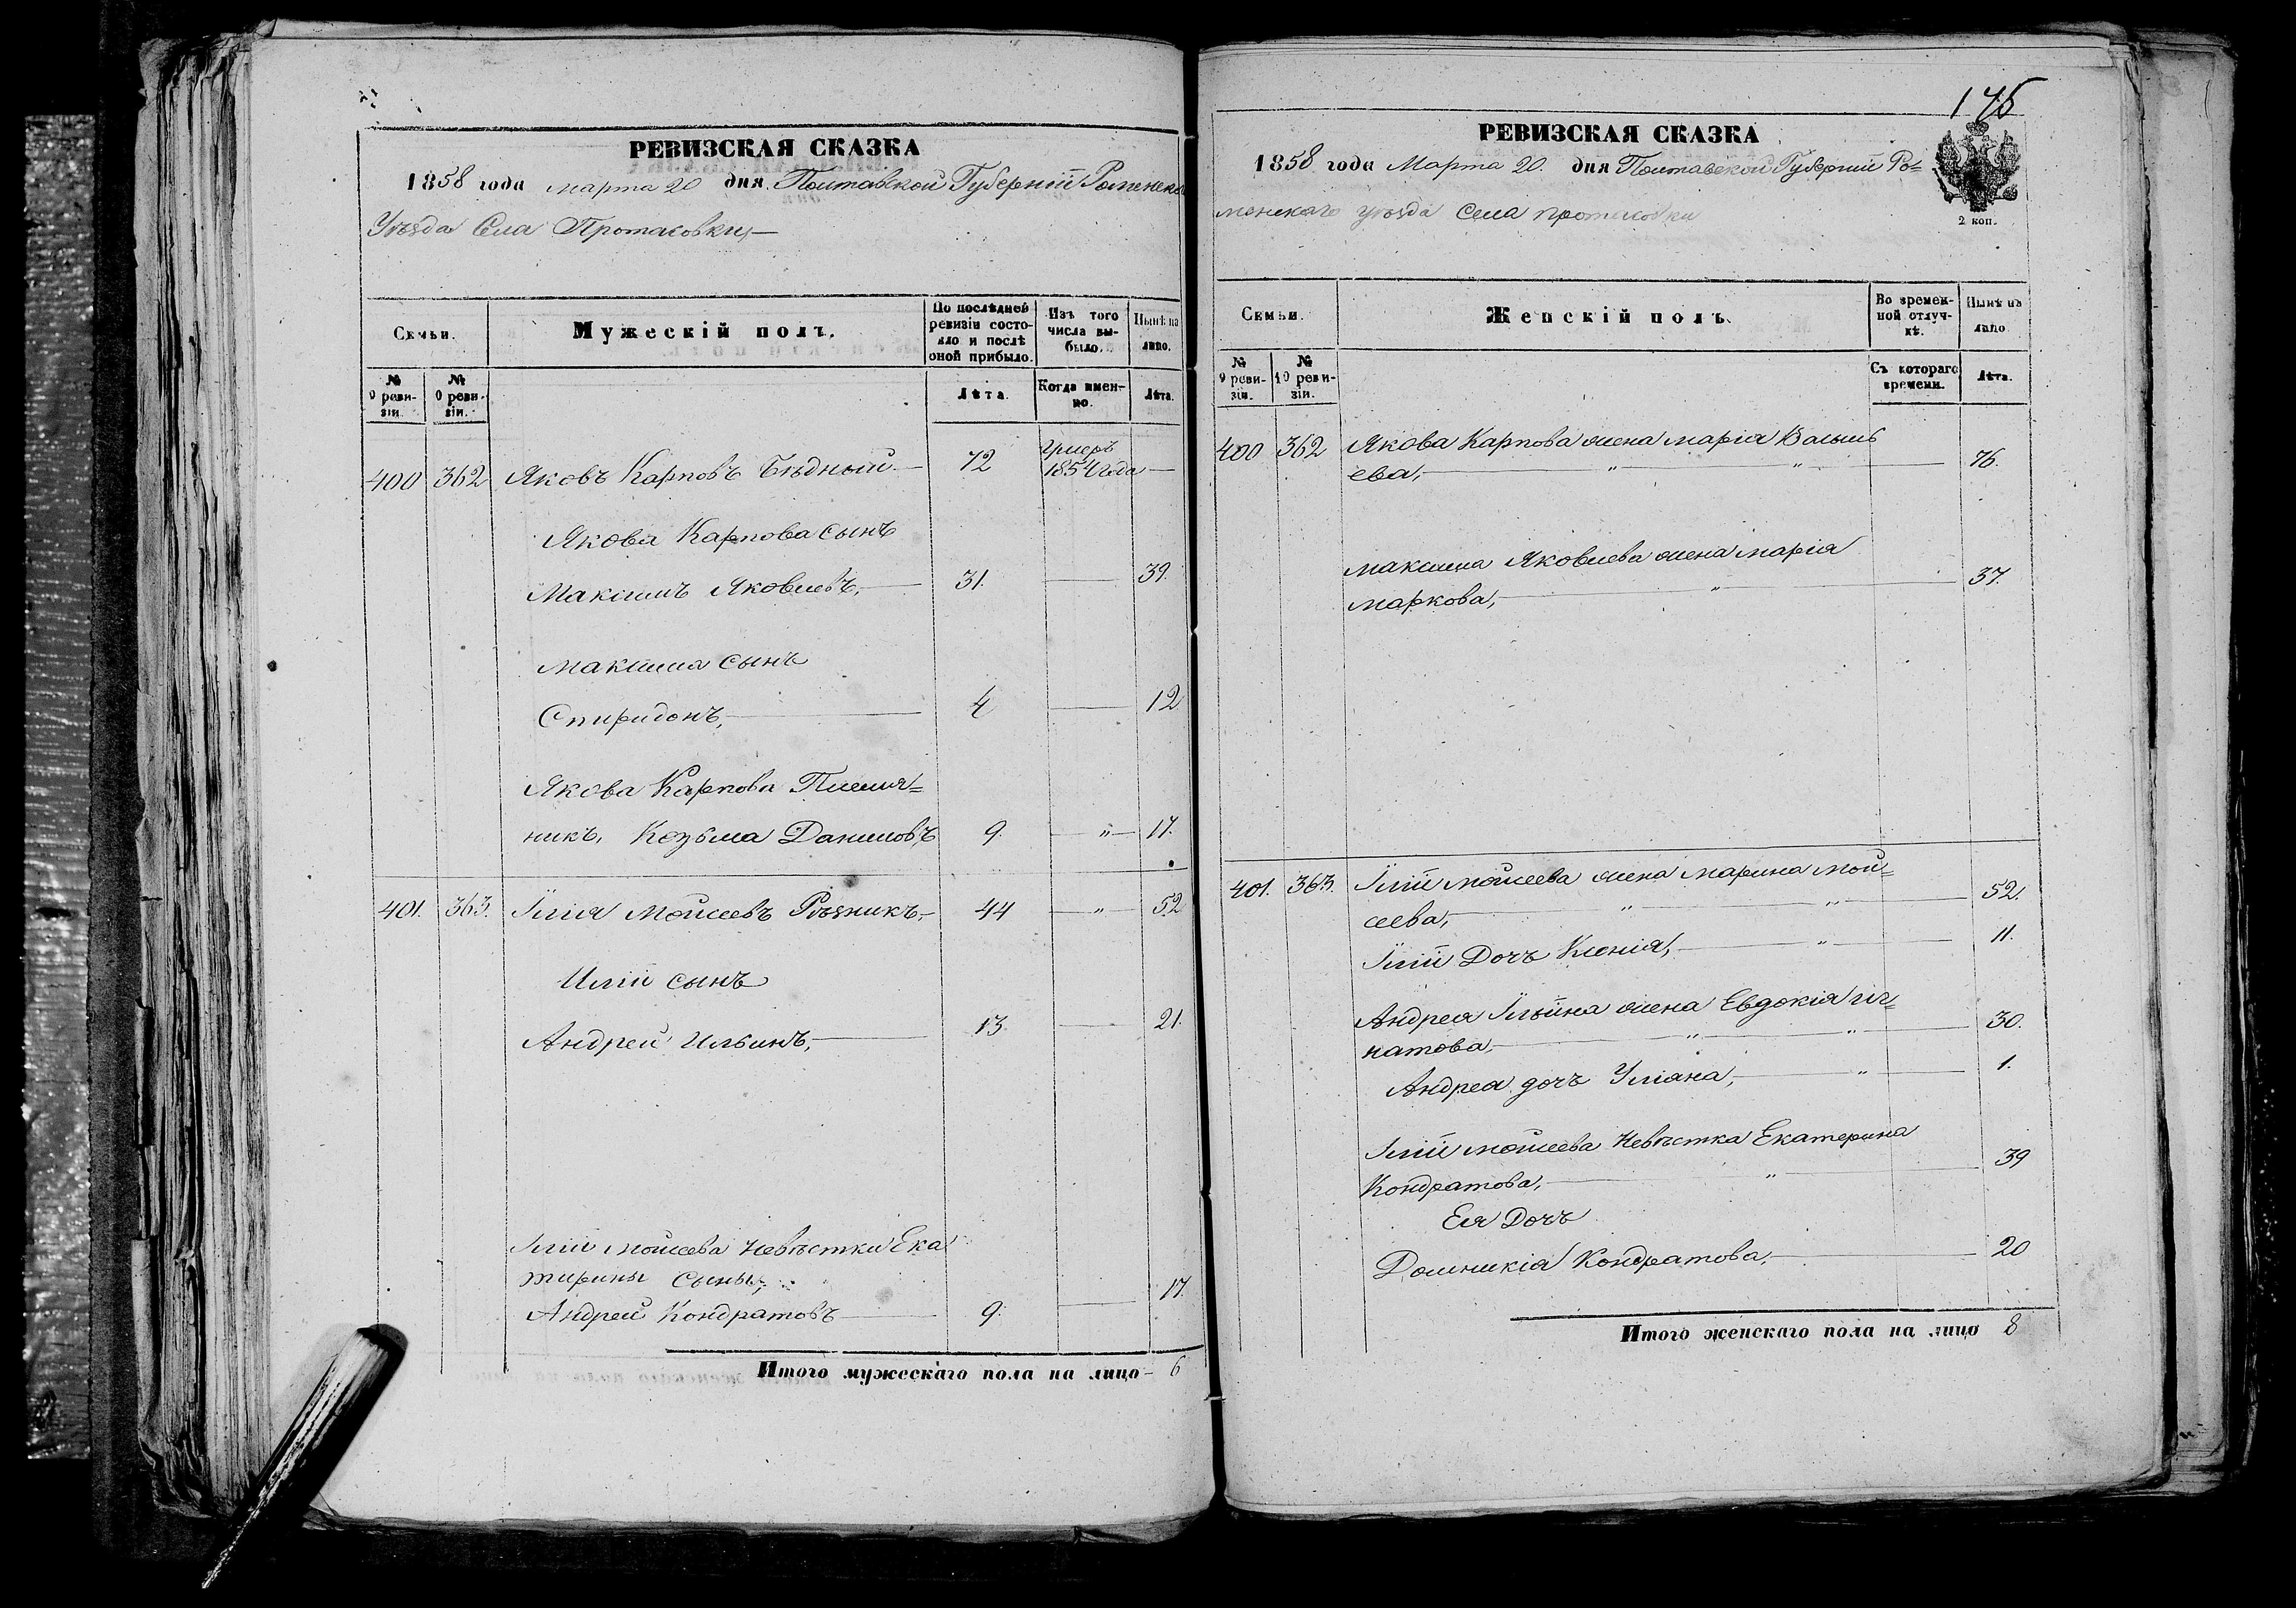 РЕВИЗСКАЯ СКАЗКА
1858 года марта 20 дня Полтавской Губернiи Роменска
Уѣзда Села Протасовки,
Семьи.
Мужескій полъ.
По послѣдней ревизіи состо-
яло и послѣ
оной прибыло.
Изъ того
числа вы-
было.
Нынѣ на
лицо.
№
9 реви-
зіи.
№
10 реви-
зіи.
Лѣта.
Когда имен-
но.
Лѣта.
400 362 Яковъ Карповъ Бѣдный 72 Умеръ
1854 года
Якова Карпова сынъ
Максимъ Яковлевъ, 31. 39.
Максима сынъ
Спиридонъ, 4 12
Якова Карпова Племя=
никъ, Козьма Даниловъ 9. " 17.
401. 363. Ілія Мойсеевъ Рѣзникъ, 44 " 52
Иліи сынъ
Андрей Ильинъ, 13. 21.
Іліи Мойсеева Невѣстки Ека
терины Сыны,
Андрей Кондратовъ 9. 17.
Итого мужескаго пола на лицо 6
175
РЕВИЗСКАЯ СКАЗКА
1858 года Марта 20. дня Полтавской Губернiи Ро=
менскаго уѣзда Села протасовки
2 коп.
Семьи.
Женскій полъ.
Во времен-
ной отлуч-
кѣ.
Нынѣ на
лицо.
№
9 реви-
зіи.
№
10 реви-
зіи.
Съ котораго
времени.
Лѣта.
400 362 Якова Карпова жена марія
ева, " " 76.
максима Яковлева жена марія
маркова, " 37.
401. 363. Іліи мойсеева жена марина мой=
сеева, " " 52.
Іліи Дочь Ксенія, " 11.
Андрея Ільина жена Евдокія иг=
натова, " " 30.
Андрея дочь Уліана, " 1.
Іліи мойсеева Невѣстка Екатерина
Кондратова, " 39
Ея Дочь
Домникія Кондратова, 20
Итого женскаго пола на лицо 8